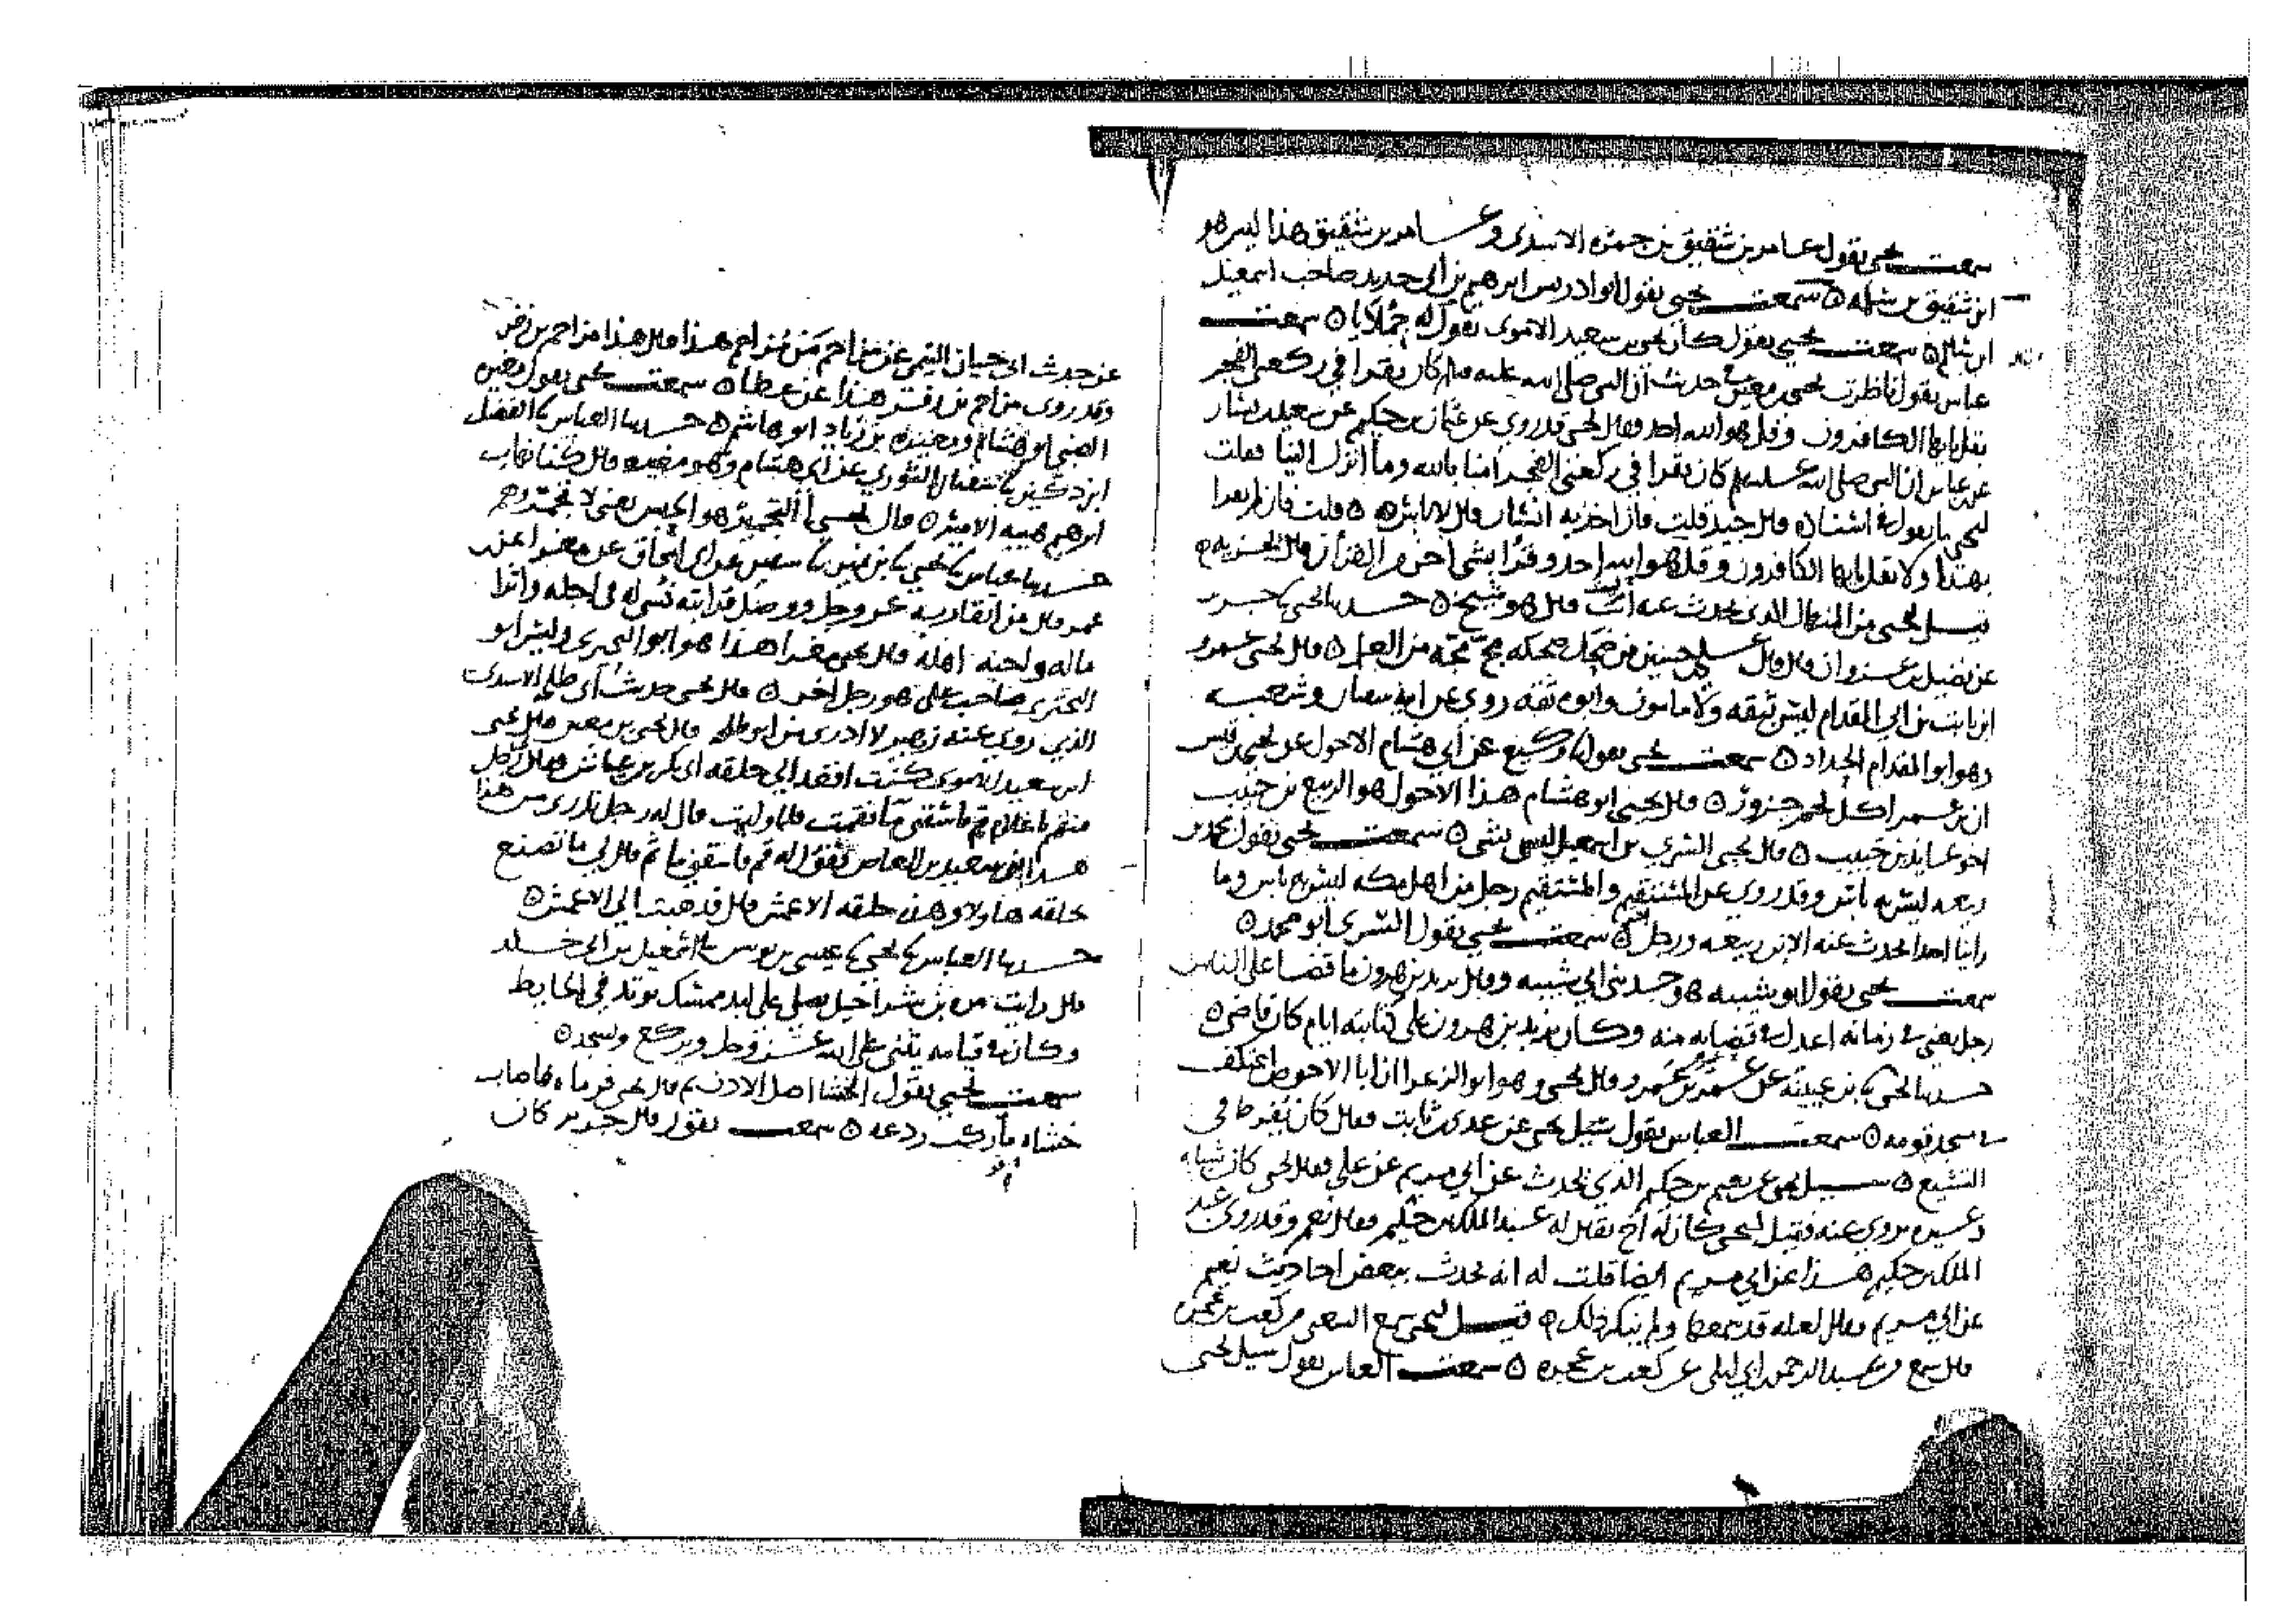 سمعت يحيى يقول عامر بن شقيق بن جمرة الاسدي وعامر بن شقيق هذا ليس هو
ابن شقيق بن سلمه ه سمعت يحيى يقول ابو ادريس ابرهيم بن ابي حديد صاحب اسمعيل
ابن سالم ه سمعت يحيى يقول كان يحيى بن سعيد الاموي يقول له جملايا ه سمعت
عباس يقول ناظرت يحيى بن معين في حديث ان النبي صلى الله عليه وسلم كان يقرا في ركعتي الفجر
بقل يايها الكافرون وقل هو الله احد فقال يحيى قد روى عن عثمان بن حكيم عن سعيد بن يسار
عن عباس ان النبي صلى الله عليه وسلم كان يقرا في ركعتي الفجر امنا بالله وما انزل الينا فقلت
ليحيى ما تقول في اسناده قال جيد قلت فان اخذ به انسان قال لا باس ه قلت فان لم يقرا
بهذا ولا بقل يايها الكافرون وقل هو الله احد وقرا بشي اخر من القرآن قال يجزيه ه
قيل ليحيى من المنهال الذي يحدث عنه قال هو شيخ ه حدثنا يحيى نا جرير
عن فضيل بن غزوان قال قال علي بن حسين من ضحك ضحكه مج مجه من العلم ه قال يحيى عمرو
ابن ثابت بن ابي المقدام ليس بثقه ولا مامون وابوه ثقه روى عن ابيه سفيان وشعبه
وهو ابو المقدام الحداد ه سمعت يحيى يقول وكيع عن ابي هشام الاحول عن يحيى بن قيس
ان بن عمر اكل لحم جزور ه قال يحيى ابو هشام هذا الاحول هو الربيع بن حبيب
اخو عايذ بن حبيب ه قال يحيى السري بن اسمعيل ليس بشي ه سمعت يحيى يقول محمد بن
ربيعه ليس به باس وقد روى عن المستقيم والمستقيم رجل من اهل مكه ليس به باس وما
راينا احدا يحدث عنه الا بن ربيعه ورجل ه سمعت يحيى يقول السري ابو محمد ه
سمعت يحيى يقول ابو شيبه هو جد بني ابي شيبه وقال يزيد بن هرون ما قضا على الناس
رجل يعني في زمانه اعدل في قضايه منه وكان يزيد بن هرون على كتابته ايام كان قاضي ه
حدثنا يحيى نا بن عيينه عن عمرو بن عمرو قال يحيى وهو ابو الزعرا ان ابا الاحوص اعتكف
في مسجد قومه ه سمعت العباس يقول سئل يحيى عن عدي بن ثابت فقال كان يفرط في
التشيع ه سئل يحيى عن نعيم بن حكيم الذي يحدث عن ابي مريم عن علي فقال يحيى كان شبابه
وغيره يروي عنه فقيل ليحيى كان له اخ يقال له عبد الملك بن حكيم فقال نعم وقد روى عبد
الملك بن حكيم هذا عن ابي مريم ايضا قلت له انه يحدث ببعض احاديث نعيم
عن ابي مريم فقال لعله قد سمعها ولم ينكر ذلك ه قيل ليحيى سمع الشعبي من كعب بن عجره
قال سمع من عبد الرحمن بن ابي ليلى عن كعب بن عجره ه سمعت العباس يقول سئل يحيى
عن حديث ابي حيان التيمي عن مزاحم من مزاحم هذا قال هذا مزاحم بن زفر
وقد روى مزاحم بن زفر هذا عن عطا ه سمعت يحيى يقول معين
الضبي ابو هشام ومغيره بن زياد ابو هاشم ه حدثنا العباس نا الفضل
ابن دكين نا سفيان الثوري عن ابي هشام وهو مغيره قال كنا نهاب
ابرهيم هيبه الامير ه قال يحيى التجمير هو الحبس يعني لا تجمروهم
حدثنا عباس نا يحيى نا بن نمير نا سفين عن ابي اسحاق عن مغرا عن بن
عمر قال من اتقا ربه عز وجل ووصل قرابته نسي له في اجله واثرا
ماله واحبه اهله قال يحيى مغرا هذا هو ابو البختري وليس ابو
البختري صاحب علي هو رجل اخر ه قال يحيى حديث ابي طلق الاسدي
الذي روى عنه زهير لا ادري من ابو طلق قال يحيى بن معين قال يحيى
ابن سعيد الاموي كنت اقعد الى حلقه ابي بكر بن عياش فقال رجل
منهم يا غلام قم فاسقني ما فقمت فلما وليت قال له رجل تدري من هذا
هذا ابن سعيد بن العاص تقول له قم فاسقني ما ثم قال لي ما تصنع
بحلقه هاولاء وهذه حلقه الاعمش قال فذهبت الى الاعمش ه
حدثنا العباس نا يحيى نا عيسى بن يونس نا اسمعيل بن ابي خالد
قال رايت مره بن شراحيل يصلي على لبد ممسك بوتد في الحايط
وكان في قيامه يثني على الله عز وجل ويركع ويسجد ه
سمعت يحيى يقول الخششا اصل الاذن ثم قال يحيى فرماه فاصاب
خششاه فاركب ردعه ه سمعت يقول قال جرير كان